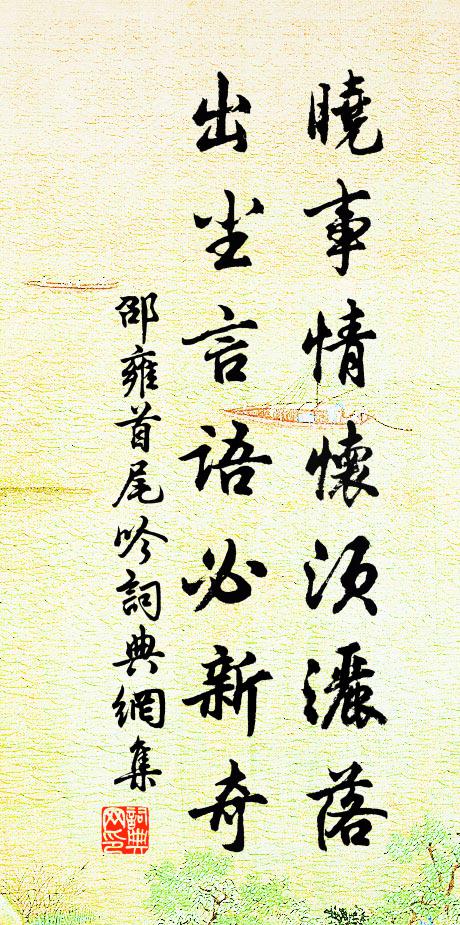 曉事情懷須灑落
出尘言語必新奇
邵雍首尾吟詞典網集
詞典網印